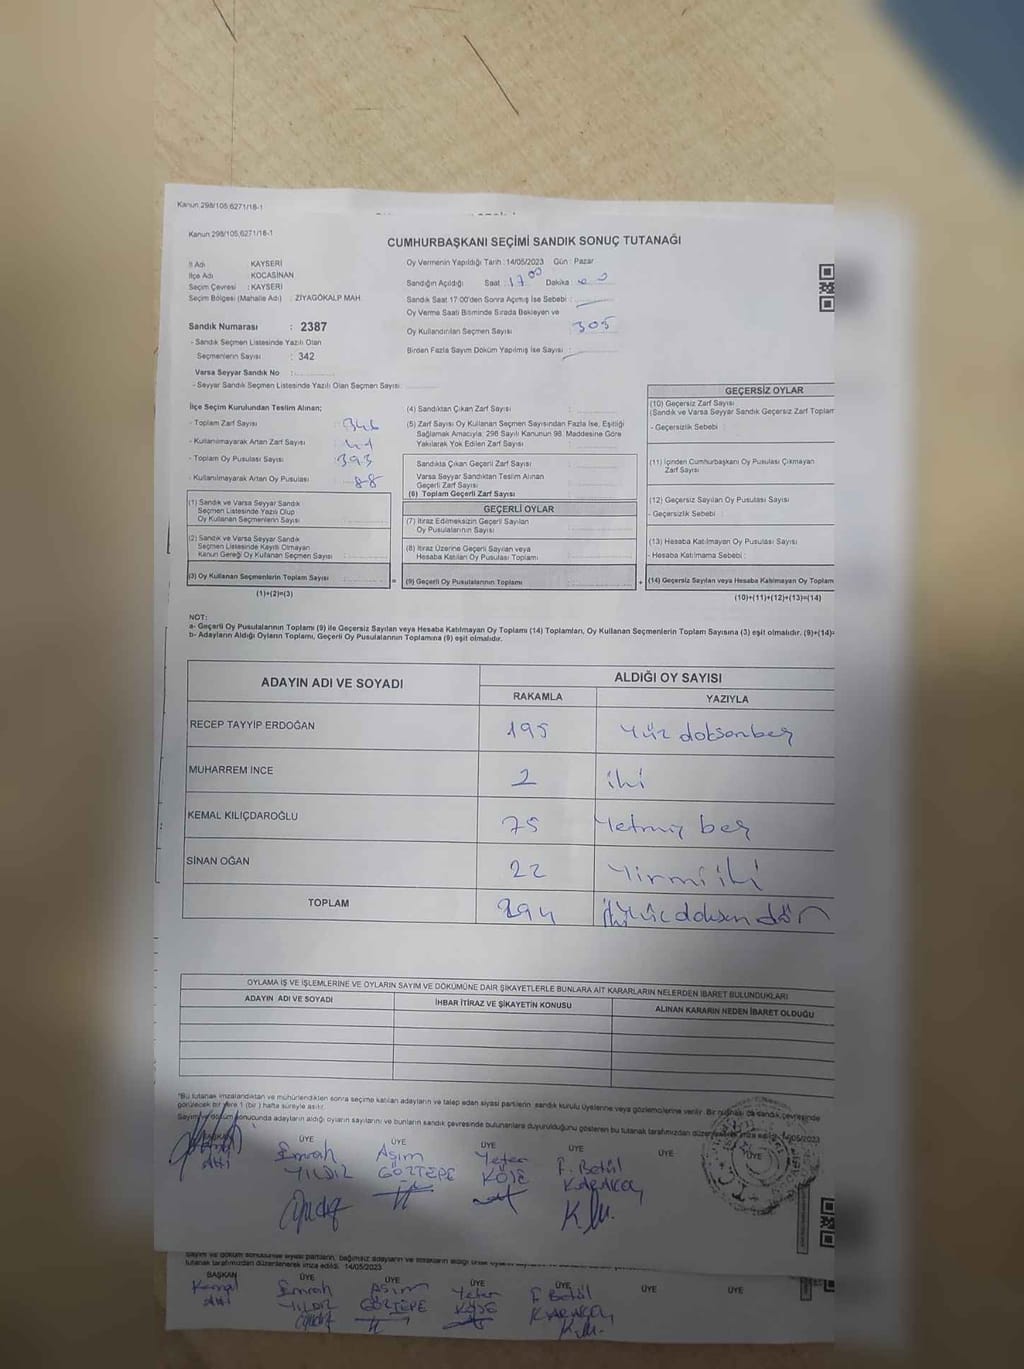 Kanun 298/105,6271/18-1
Kanun 298/105,6271/18-1
CUMHURBAŞKANI SEÇİMİ SANDIK SONUÇ TUTANAĞI
İl Adı KAYSERİ
İlçe Adı KOCASİNAN
Seçim Çevresi : KAYSERİ
Seçim Bölgesi (Mahalle Adı) : ZİYAGÖKALP MAH.
Sandık Numarası : 2387
- Sandık Seçmen Listesinde Yazılı Olan
Seçmenlerin Sayısı : 342
Varsa Seyyar Sandık No :
- Seyyar Sandık Seçmen Listesinde Yazılı Olan Seçmen Sayısı:
Oy Vermenin Yapıldığı Tarih : 14/05/2023 Gün : Pazar
Sandığın Açıldığı Saat : 17 00 Dakika :
Sandık Saat 17:00'den Sonra Açılmış İse Sebebi :
Oy Verme Saati Bitiminde Sırada Bekleyen ve
Oy Kullandırılan Seçmen Sayısı 305
Birden Fazla Sayım Döküm Yapılmış İse Sayısı :
İlçe Seçim Kurulundan Teslim Alınan;
- Toplam Zarf Sayısı : 346
- Kullanılmayarak Artan Zarf Sayısı : 41
- Toplam Oy Pusulası Sayısı : 393
- Kullanılmayarak Artan Oy Pusulası : 88
(1) Sandık ve Varsa Seyyar Sandık
Seçmen Listesinde Yazılı Olup
Oy Kullanan Seçmenlerin Sayısı
(2) Sandık ve Varsa Seyyar Sandık
Seçmen Listesinde Kayıtlı Olmayan
Kanun Gereği Oy Kullanan Seçmen Sayısı
(3) Oy Kullanan Seçmenlerin Toplam Sayısı
(1)+(2)=(3)
(4) Sandıktan Çıkan Zarf Sayısı :
(5) Zarf Sayısı Oy Kullanan Seçmen Sayısından Fazla İse, Eşitliği
Sağlamak Amacıyla; 298 Sayılı Kanunun 98. Maddesine Göre
Yakılarak Yok Edilen Zarf Sayısı :
Sandıkta Çıkan Geçerli Zarf Sayısı
Varsa Seyyar Sandıktan Teslim Alınan
Geçerli Zarf Sayısı
(6) Toplam Geçerli Zarf Sayısı
GEÇERLİ OYLAR
(7) İtiraz Edilmeksizin Geçerli Sayılan
Oy Pusulalarının Sayısı
(8) İtiraz Üzerine Geçerli Sayılan veya
Hesaba Katılan Oy Pusulası Toplamı
= (9) Geçerli Oy Pusulalarının Toplamı
GEÇERSİZ OYLAR
(10) Geçersiz Zarf Sayısı
(Sandık ve Varsa Seyyar Sandık Geçersiz Zarf Toplam
- Geçersizlik Sebebi
(11) İçinden Cumhurbaşkanı Oy Pusulası Çıkmayan
Zarf Sayısı
(12) Geçersiz Sayılan Oy Pusulası Sayısı
- Geçersizlik Sebebi :
(13) Hesaba Katılmayan Oy Pusulası Sayısı
- Hesaba Katılmama Sebebi :
+ (14) Geçersiz Sayılan veya Hesaba Katılmayan Oy Toplam
(10)+(11)+(12)+(13)=(14)
NOT:
a- Geçerli Oy Pusulalarının Toplamı (9) ile Geçersiz Sayılan veya Hesaba Katılmayan Oy Toplamı (14) Toplamları, Oy Kullanan Seçmenlerin Toplam Sayısına (3) eşit olmalıdır. (9)+(14)=
b- Adayların Aldığı Oyların Toplamı, Geçerli Oy Pusulalarının Toplamına (9) eşit olmalıdır.
ADAYIN ADI VE SOYADI ALDIĞI OY SAYISI
RAKAMLA YAZIYLA
RECEP TAYYİP ERDOĞAN 195 Yüz doksanbeş
MUHARREM İNCE 2 iki
KEMAL KILIÇDAROĞLU 75 Yetmiş beş
SİNAN OĞAN 22 Yirmi iki
TOPLAM 294 ikiyüz doksan dör
OYLAMA İŞ VE İŞLEMLERİNE VE OYLARIN SAYIM VE DÖKÜMÜNE DAİR ŞİKAYETLERLE BUNLARA AİT KARARLARIN NELERDEN İBARET BULUNDUKLARI
ADAYIN ADI VE SOYADI İHBAR İTİRAZ VE ŞİKAYETİN KONUSU ALINAN KARARIN NEDEN İBARET OLDUĞU
*Bu tutanak imzalandıktan ve mühürlendikten sonra seçime katılan adayların ve talep eden siyasi partilerin, sandık kurulu üyelerine veya gözlemcilerine verilir. Bir nüshası da sandık çevresinde
görülecek bir yere 1 (bir) hafta süreyle asılır.
Sayım ve döküm sonucunda adayların aldığı oyların sayılarını ve bunların sandık çevresinde bulunanlara duyurulduğunu gösteren bu tutanak tarafımızdan düzenlenerek imza edildi. 14/05/2023
BAŞKAN ÜYE ÜYE ÜYE ÜYE ÜYE ÜYE
Emrah Asım Yeter F. Betül
YILDIZ GÖZTEPE KÖSE KARAKOÇ
tutanak tarafımızdan düzenlenerek imza edildi. 14/05/2023
BAŞKAN ÜYE ÜYE ÜYE ÜYE ÜYE ÜYE
Kemal Emrah Asım Yeter F. Betül
YILDIZ GÖZTEPE KÖSE KARAKOÇ